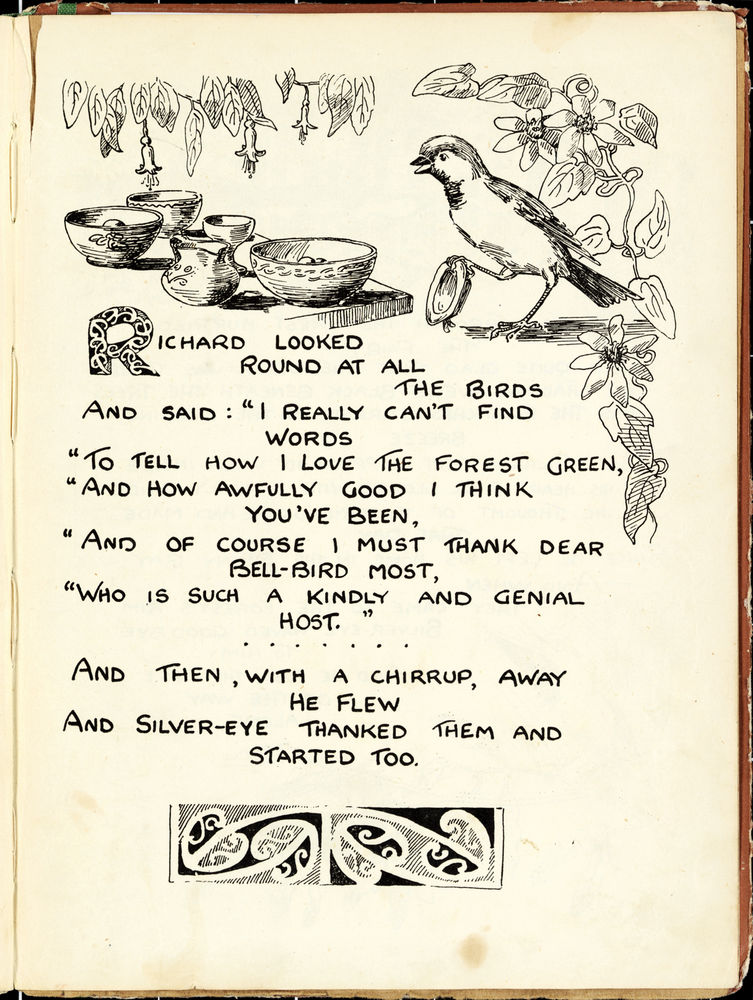 RICHARD LOOKED
ROUND AT ALL
THE BIRDS
AND SAID: "I REALLY CAN'T FIND
WORDS
"TO TELL HOW I LOVE THE FOREST GREEN,
"AND HOW AWFULLY GOOD I THINK
YOU'VE BEEN,
"AND OF COURSE I MUST THANK DEAR
BELL-BIRD MOST,
"WHO IS SUCH A KINDLY AND GENIAL
HOST."
. . . . . . . .
AND THEN, WITH A CHIRRUP, AWAY
HE FLEW
AND SILVER-EYE THANKED THEM AND
STARTED TOO.